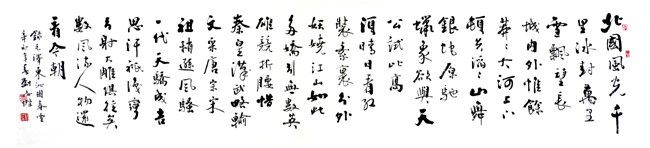 北國風光千
里冰封萬里
雪飄望長
城内外惟餘
莽々大河上下
頓失滔々山舞
銀蛇原馳
蠟象欲與天
公試比高
須晴日看红
裝素裹分外
妖嬈江山如此
多嬌引無數英
雄競折腰惜
秦皇漢武略輸
文采唐宗宋
祖稍遜風騷
一代天驕成吉
思汗祇識彎
弓射大雕俱往矣
數風流人物還
看今朝
錄毛澤東沁園春雪